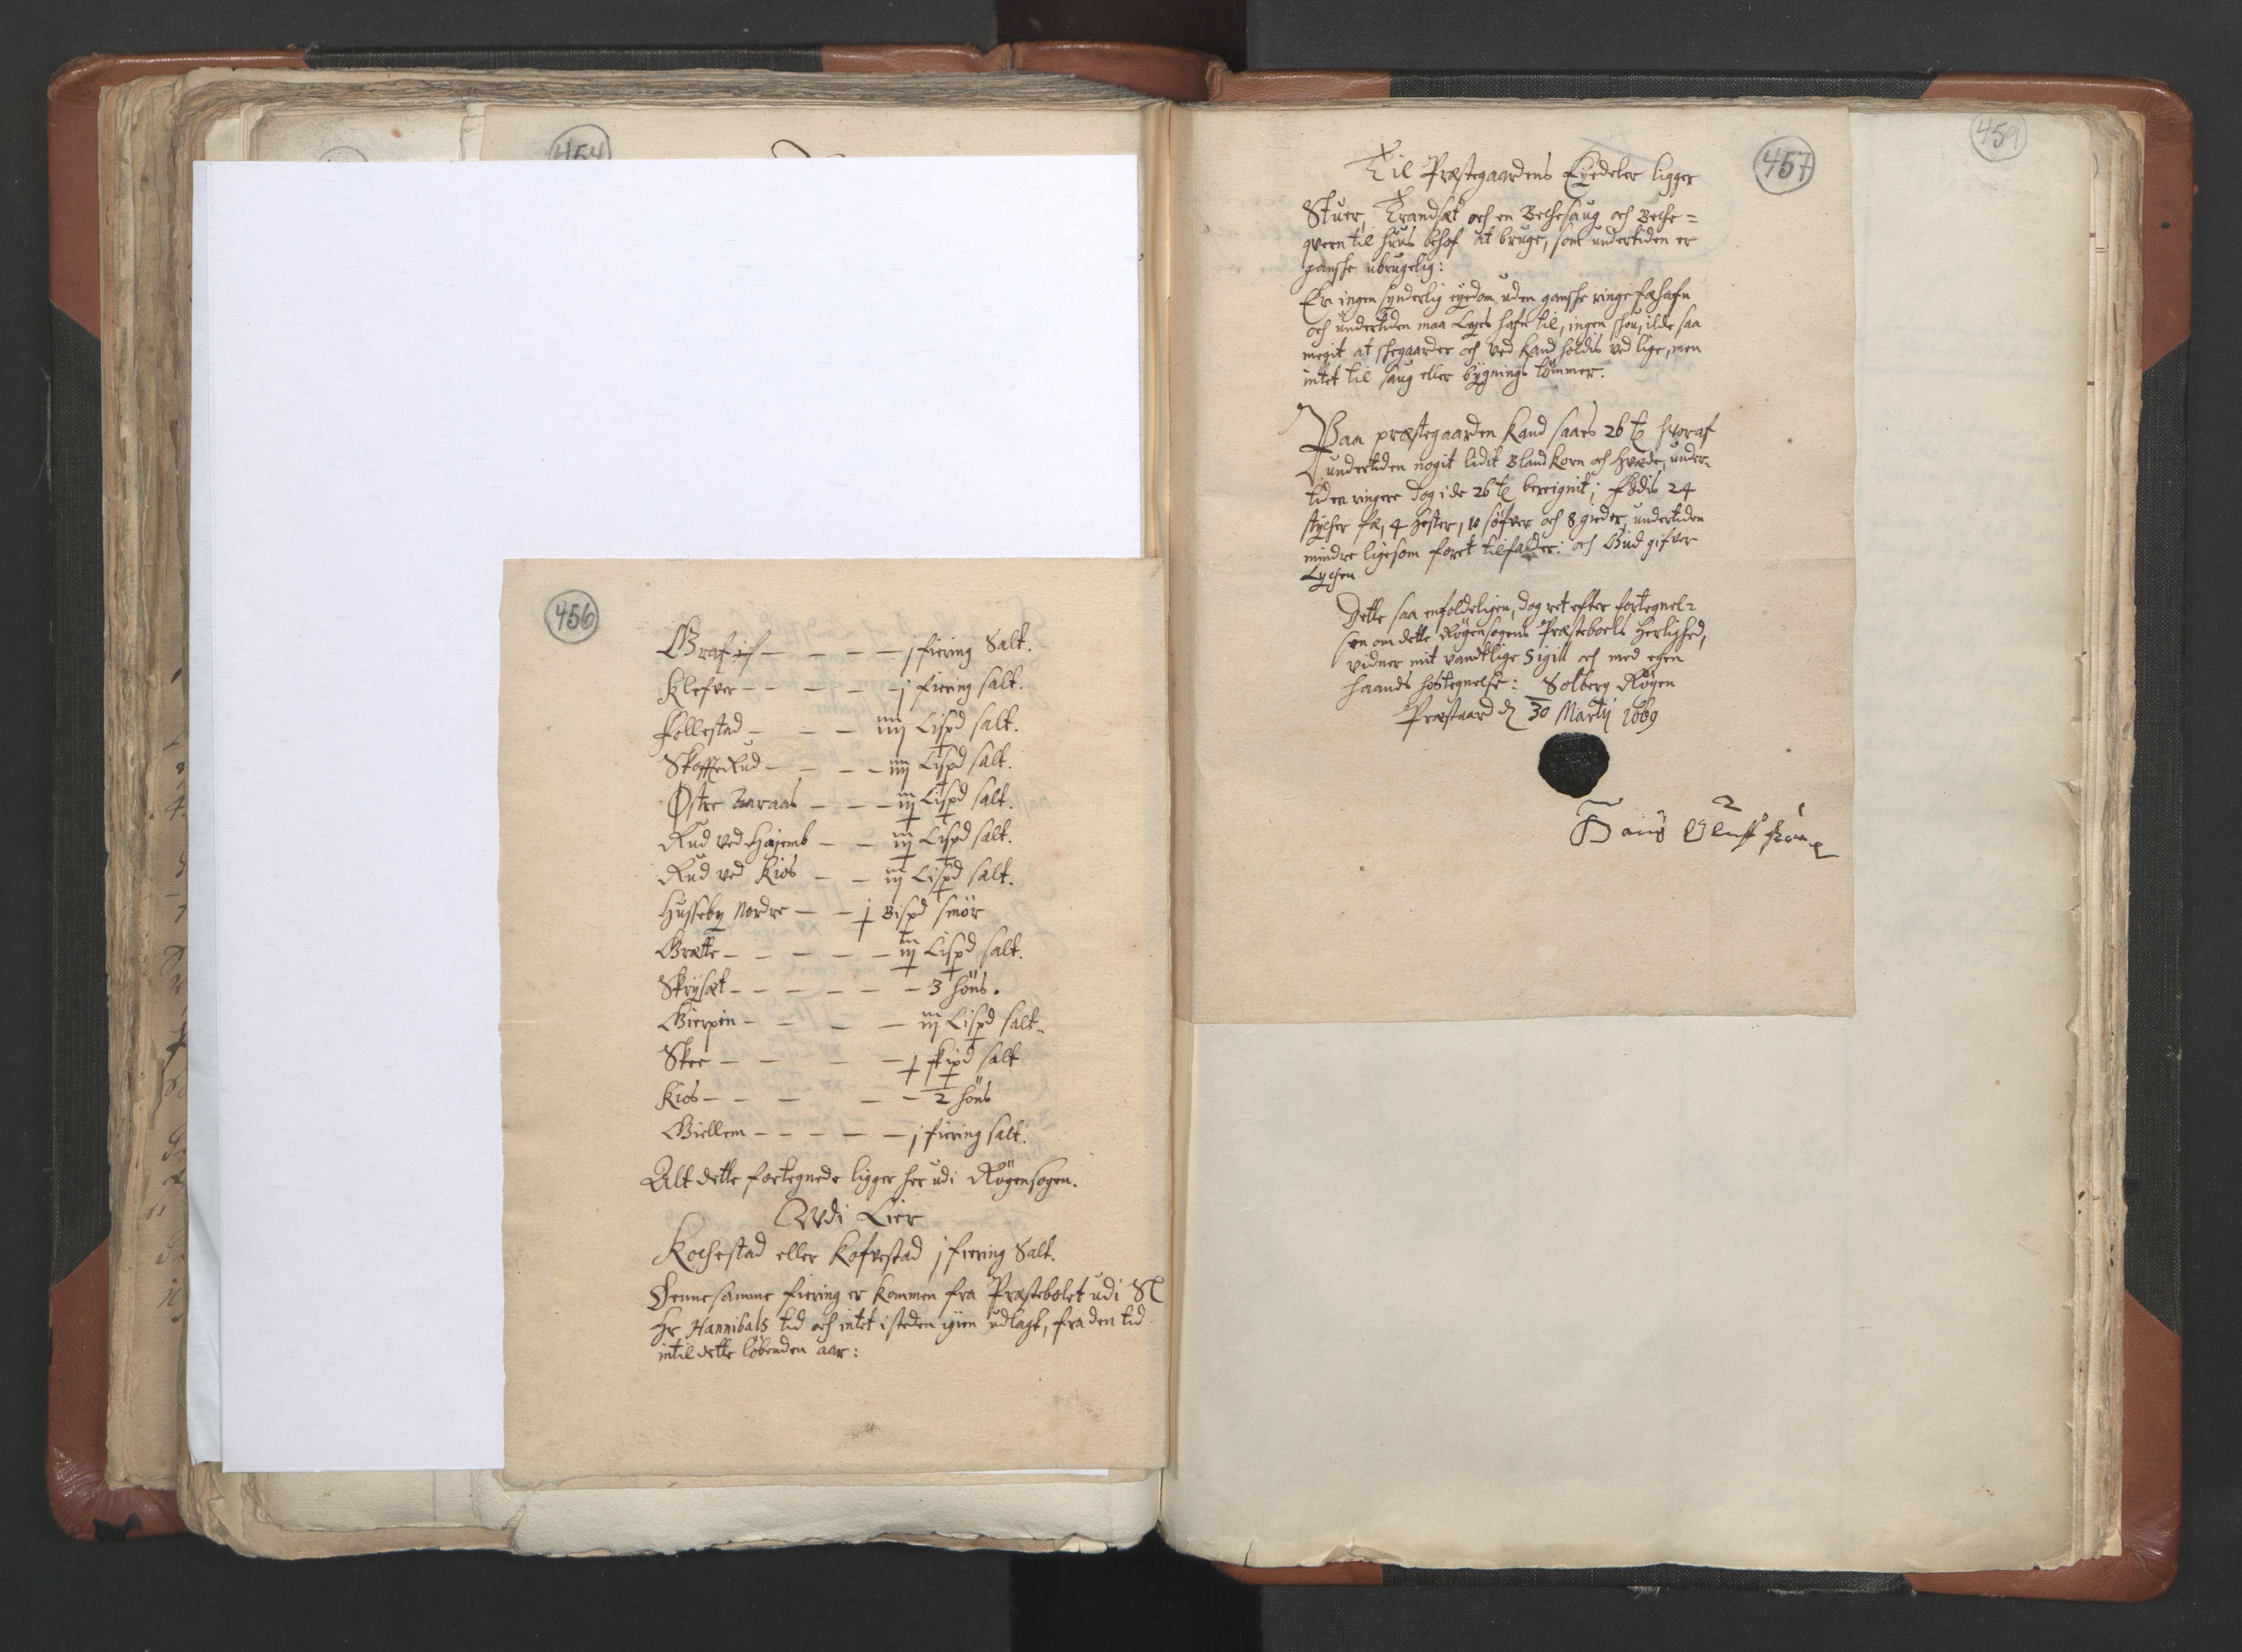 454
456
Grafif — — — — j fiering Salt.
Klefver — — — — — j fiering salt.
Follestad — — — iiij Lispd salt.
Skoffterud — — — — iiij Lispd salt.
Østre Aaraas — — — iij Lispd salt.
Rud ved Højemb — — iij Lispd salt.
Rud ved Kios — — iij Lispd salt.
Husseby Nordre — — j Bispd smör
Grette — — — — — iij Lispd salt.
Skrysæt — — — — — — 3 höns.
Gierpen — — — — iij Lispd salt.
Skee — — — — skipd salt
Kios — — — — — 2 höns
Giellem — — — — — j fiering salt.
Alt dette fortegnede ligger her udi Rögensogen.
Udi Lier
Kochestad eller Kofvestad j fiering Salt.
Denne samme fiering er kommen fra Præstebolet udi Sl
Hr Hannibals tid och intet i steden igien udlagt, fra den tid
intil dette löbenden aar:
457
Til Præstegaardens Eyedeler ligger
Stuer, Trandsæt och en Bechesaug och Beche=
qvern til huus behof at bruge, som undertiden er
ganske ubrugelig:
Er ingen synderlig eyedom uden ganske ringe fæhafn
och undertiden maa Leyes hafn til, ingen skou, ilde saa
megit at skegaarder och ved kand holdis ved lige, men
intet til saug eller bygnings tömmer.
Paa præstegaarden kand saaes 26 tl hvoraf
undertiden nogit lidit Blandkorn och hvede, under-
tiden ringere dog i de 26 tl bereignit; födis 24
stycher fæ, 4 hester, 10 söfver och 8 gieder, undertiden
mindre ligesom foret tilfalder: och Gud gifver
Lychen
Dette saa enfoldeligen, dog ret efter fortegnel=
sen om dette Rögensogens Præsteboels herlighed,
vidner mit vandtlige Sigill och med egen
haands hostegnelse: Solberg Rögen
Præstaard d 30 Martij 1669
Hans Oluff
459